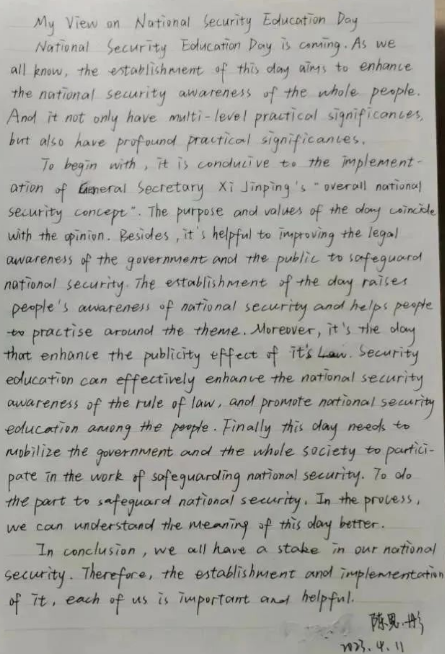 My View on National Security Education Day
National Security Education Day is coming. As we
all know, the establishment of this day aims to enhance
the national security awareness of the whole people.
And it not only have multi-level practical significances,
but also have profound practical significances.
To begin with, it is conducive to the implement-
ation of General Secretary Xi Jinping's "overall national
security concept". The purpose and values of the day coincide
with the opinion. Besides, it's helpful to improving the legal
awareness of the government and the public to safeguard
national security. The establishment of the day raises
people's awareness of national security and helps people
to practise around the theme. Moreover, it's the day
that enhance the publicity effect of it's Law. Security
education can effectively enhance the national security
awareness of the rule of law, and promote national security
education among the people. Finally this day needs to
mobilize the government and the whole society to partici-
pate in the work of safeguarding national security. To do
the part to safeguard national security. In the process,
we can understand the meaning of this day better.
In conclusion, we all have a stake in our national
security. Therefore, the establishment and implementation
of it, each of us is important and helpful.
陈思彤
2023.4.11